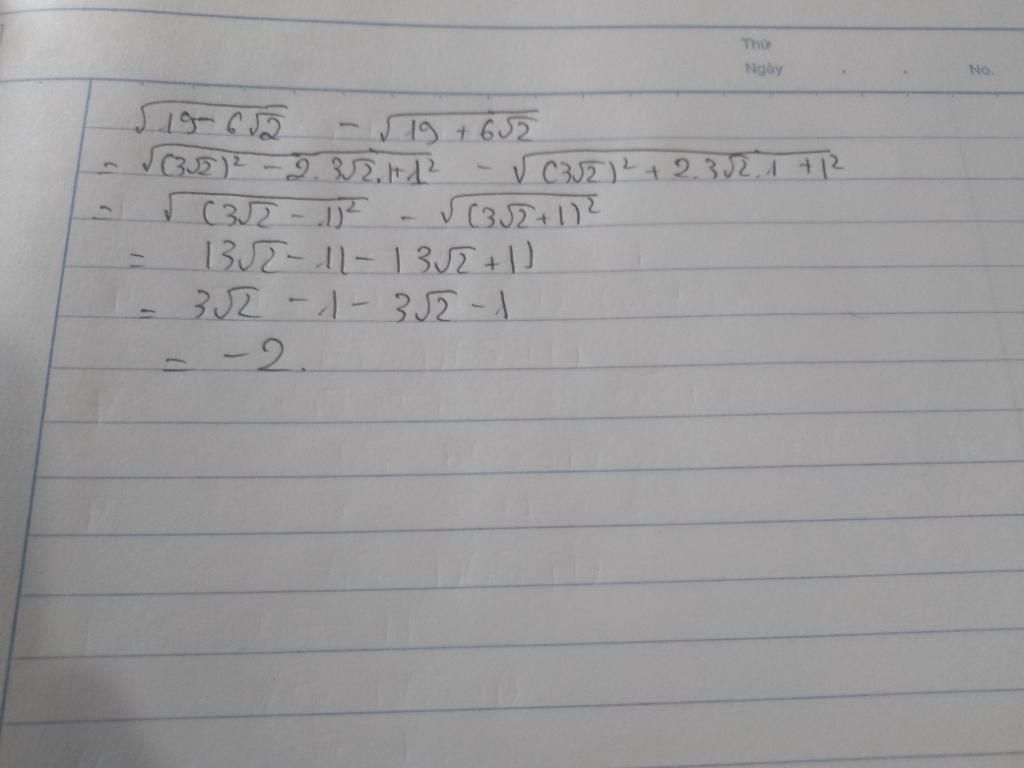 Thứ
Ngày . . No.
√(19 - 6√2) - √(19 + 6√2)
= √((3√2)² - 2.3√2.1+1²) - √((3√2)² + 2.3√2.1 +1²)
= √((3√2 - 1)²) - √((3√2+1)²)
= |3√2 - 1| - |3√2 + 1|
= 3√2 - 1 - 3√2 - 1
= -2.